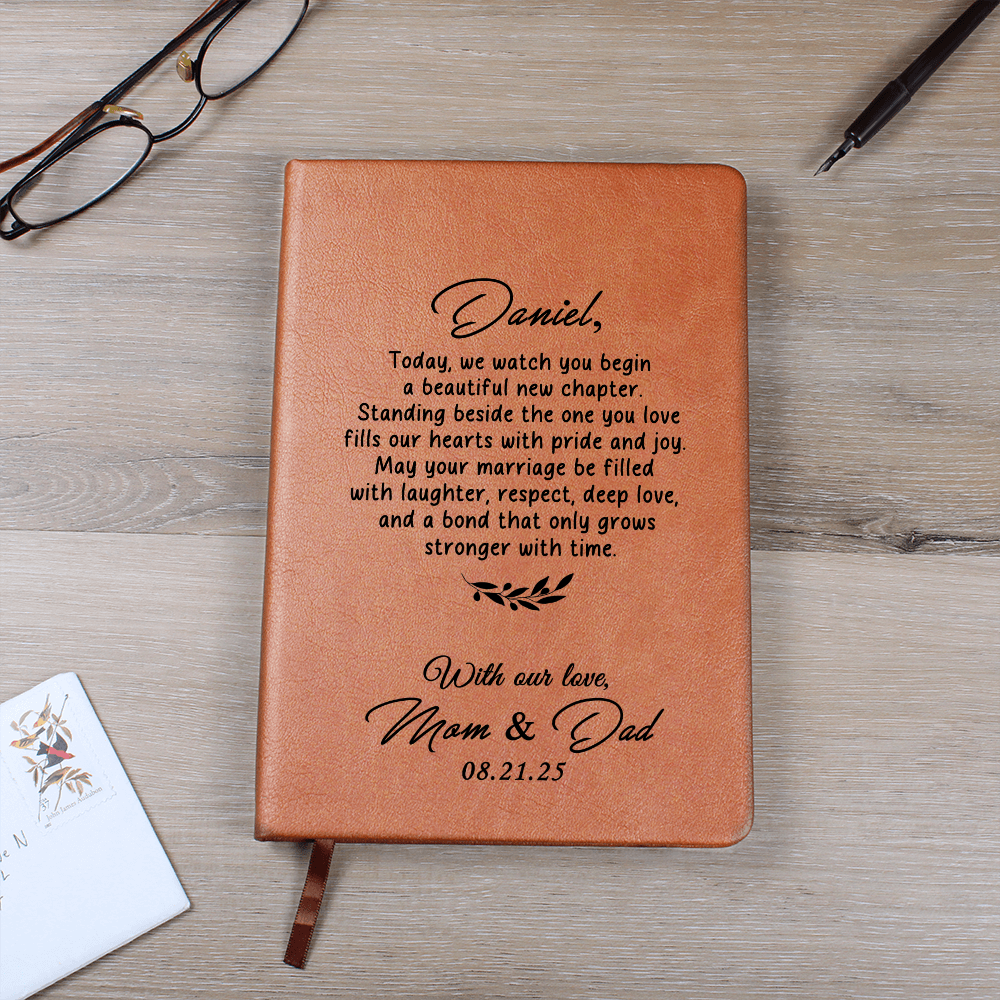 Daniel,
Today, we watch you begin
a beautiful new chapter.
Standing beside the one you love
fills our hearts with pride and joy.
May your marriage be filled
with laughter, respect, deep love,
and a bond that only grows
stronger with time.
With our love,
Mom & Dad
08.21.25
37
John James Audubon
N
L